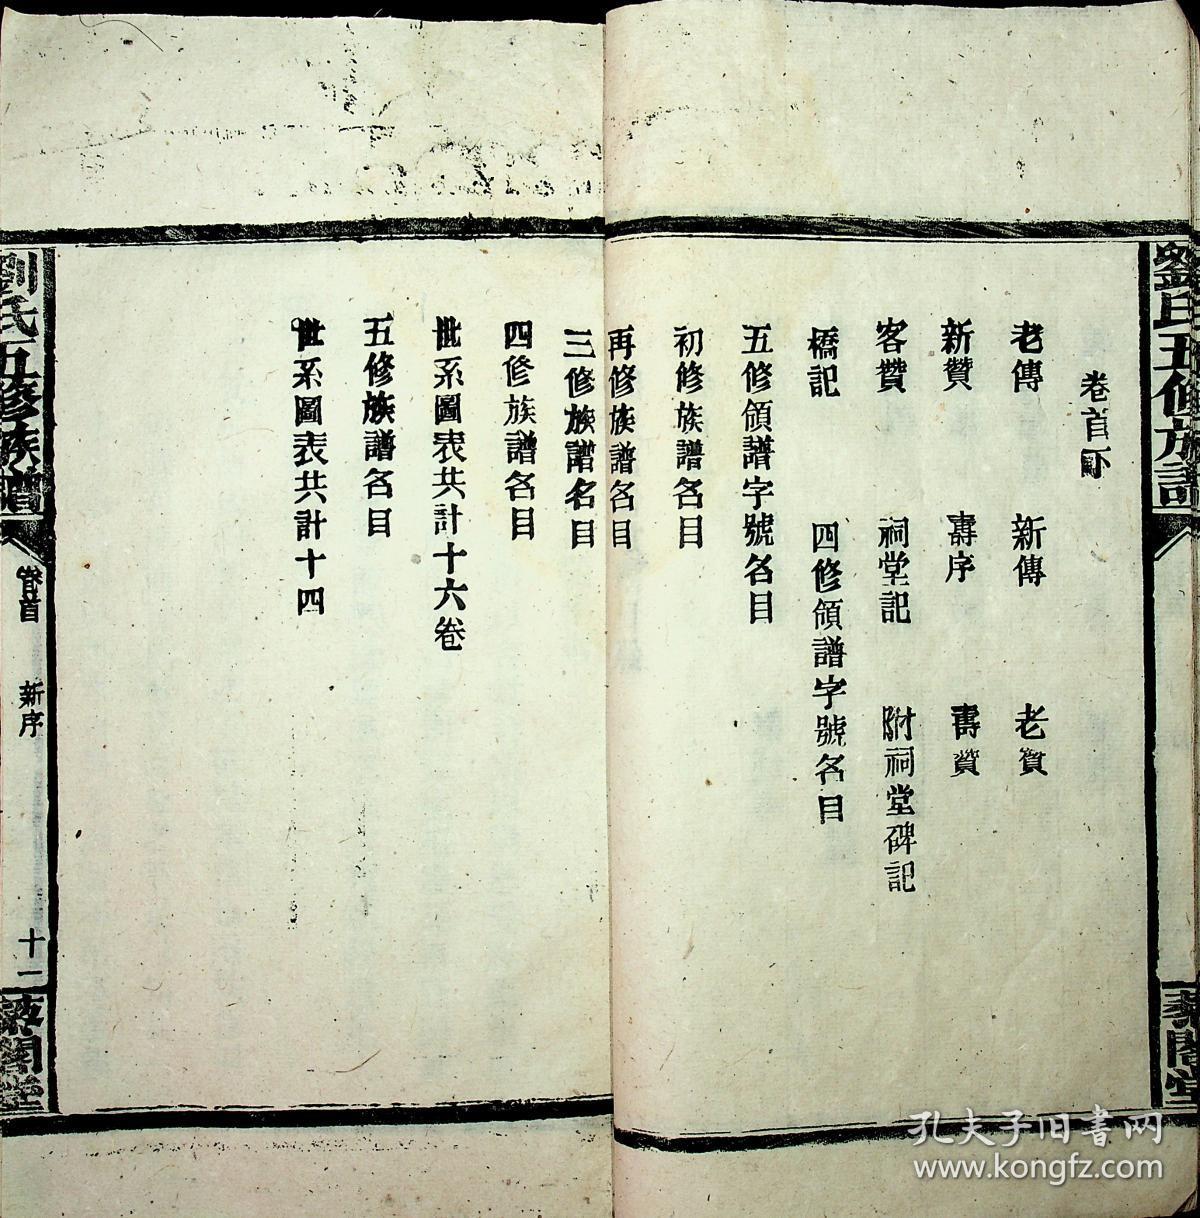 劉氏五修族譜
藜閣堂
卷首下
老傳 新傳 老贊
新贊 壽序 壽贊
客贊 祠堂記 附祠堂碑記
橋記 四修領譜字號名目
五修領譜字號名目
初修族譜名目
再修族譜名目
三修族譜名目
四修族譜名目
世系圖表共計十六卷
五修族譜名目
世系圖表共計十四
劉氏五修族譜
卷首
新序
十二
藜閣堂
孔夫子旧书网
www.kongfz.com